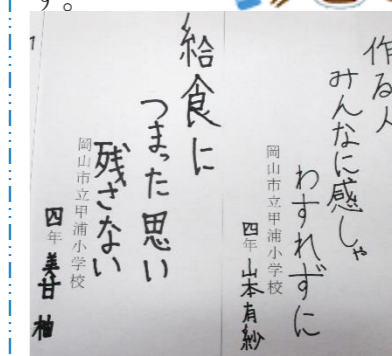 す。
作る人
みんなに感しゃ
わすれずに
岡山市立甲浦小学校
四年 山本有紗
給食に
つまった思い
残さない
岡山市立甲浦小学校
四年 美甘 柚
1